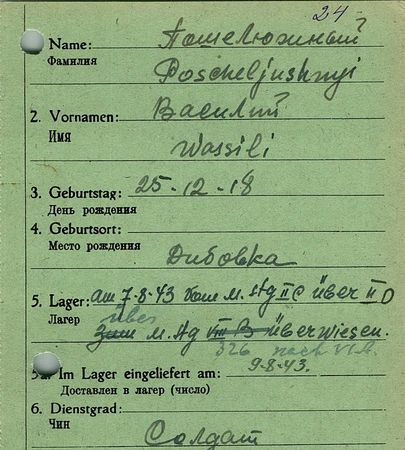 24
Name: Пошелюжный
Фамилия
Poscheljushnyi
2. Vornamen: Василий
Имя
Wassili
3. Geburtstag: 25-12-18
День рождения
4. Geburtsort:
Место рождения
Дибовка
5. Lager: am 7-8-43 vom M. Stg II C über II D
Лагер
über
zum M. Stg VIII B überwiesen.
326 nach VI A.
5a. Im Lager eingeliefert am: 9-8-43.
Доставлен в лагер (число)
6. Dienstgrad:
Чин
Солдат